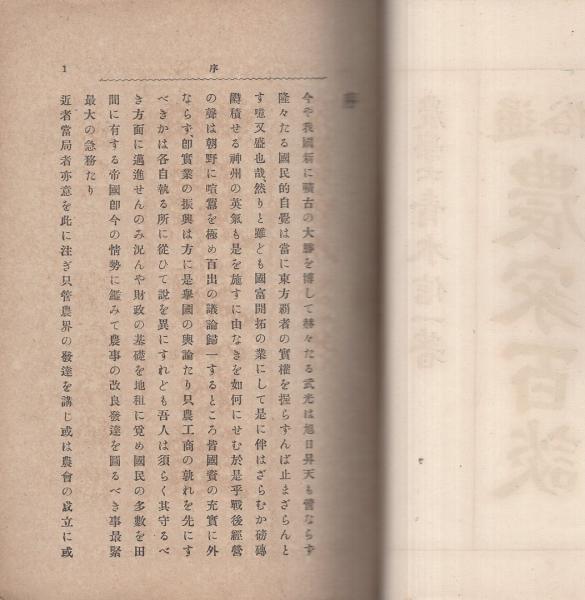 序
1
序
今や我國新に曠古の大勝を博して赫々たる武光は旭日昇天も啻ならず
隆々たる國民的自覺は當に東方覇者の實權を握らずんば止まざらんと
す噫又盛也哉、然りと雖ども國富開拓の業にして是に伴はざらむか磅礴
鬱積せる神州の英氣も是を施すに由なきを如何にせむ於是乎戰後經營
の聲は朝野に喧囂を極め百出の議論歸一するところ皆國資の充實に外
ならず、卽實業の振興は方に是擧國の輿論たり只農工商の孰れを先にす
べきかは各自執る所に從ひて說を異にすれども吾人は須らく其守るべ
き方面に邁進せんのみ況んや財政の基礎を地租に覓め國民の多數を田
間に有する帝國卽今の情勢に鑑みて農事の改良發達を圖るべき事最緊
最大の急務たり
近者當局者亦意を此に注ぎ只管農界の發達を講じ或は農會の成立に或
農家百談